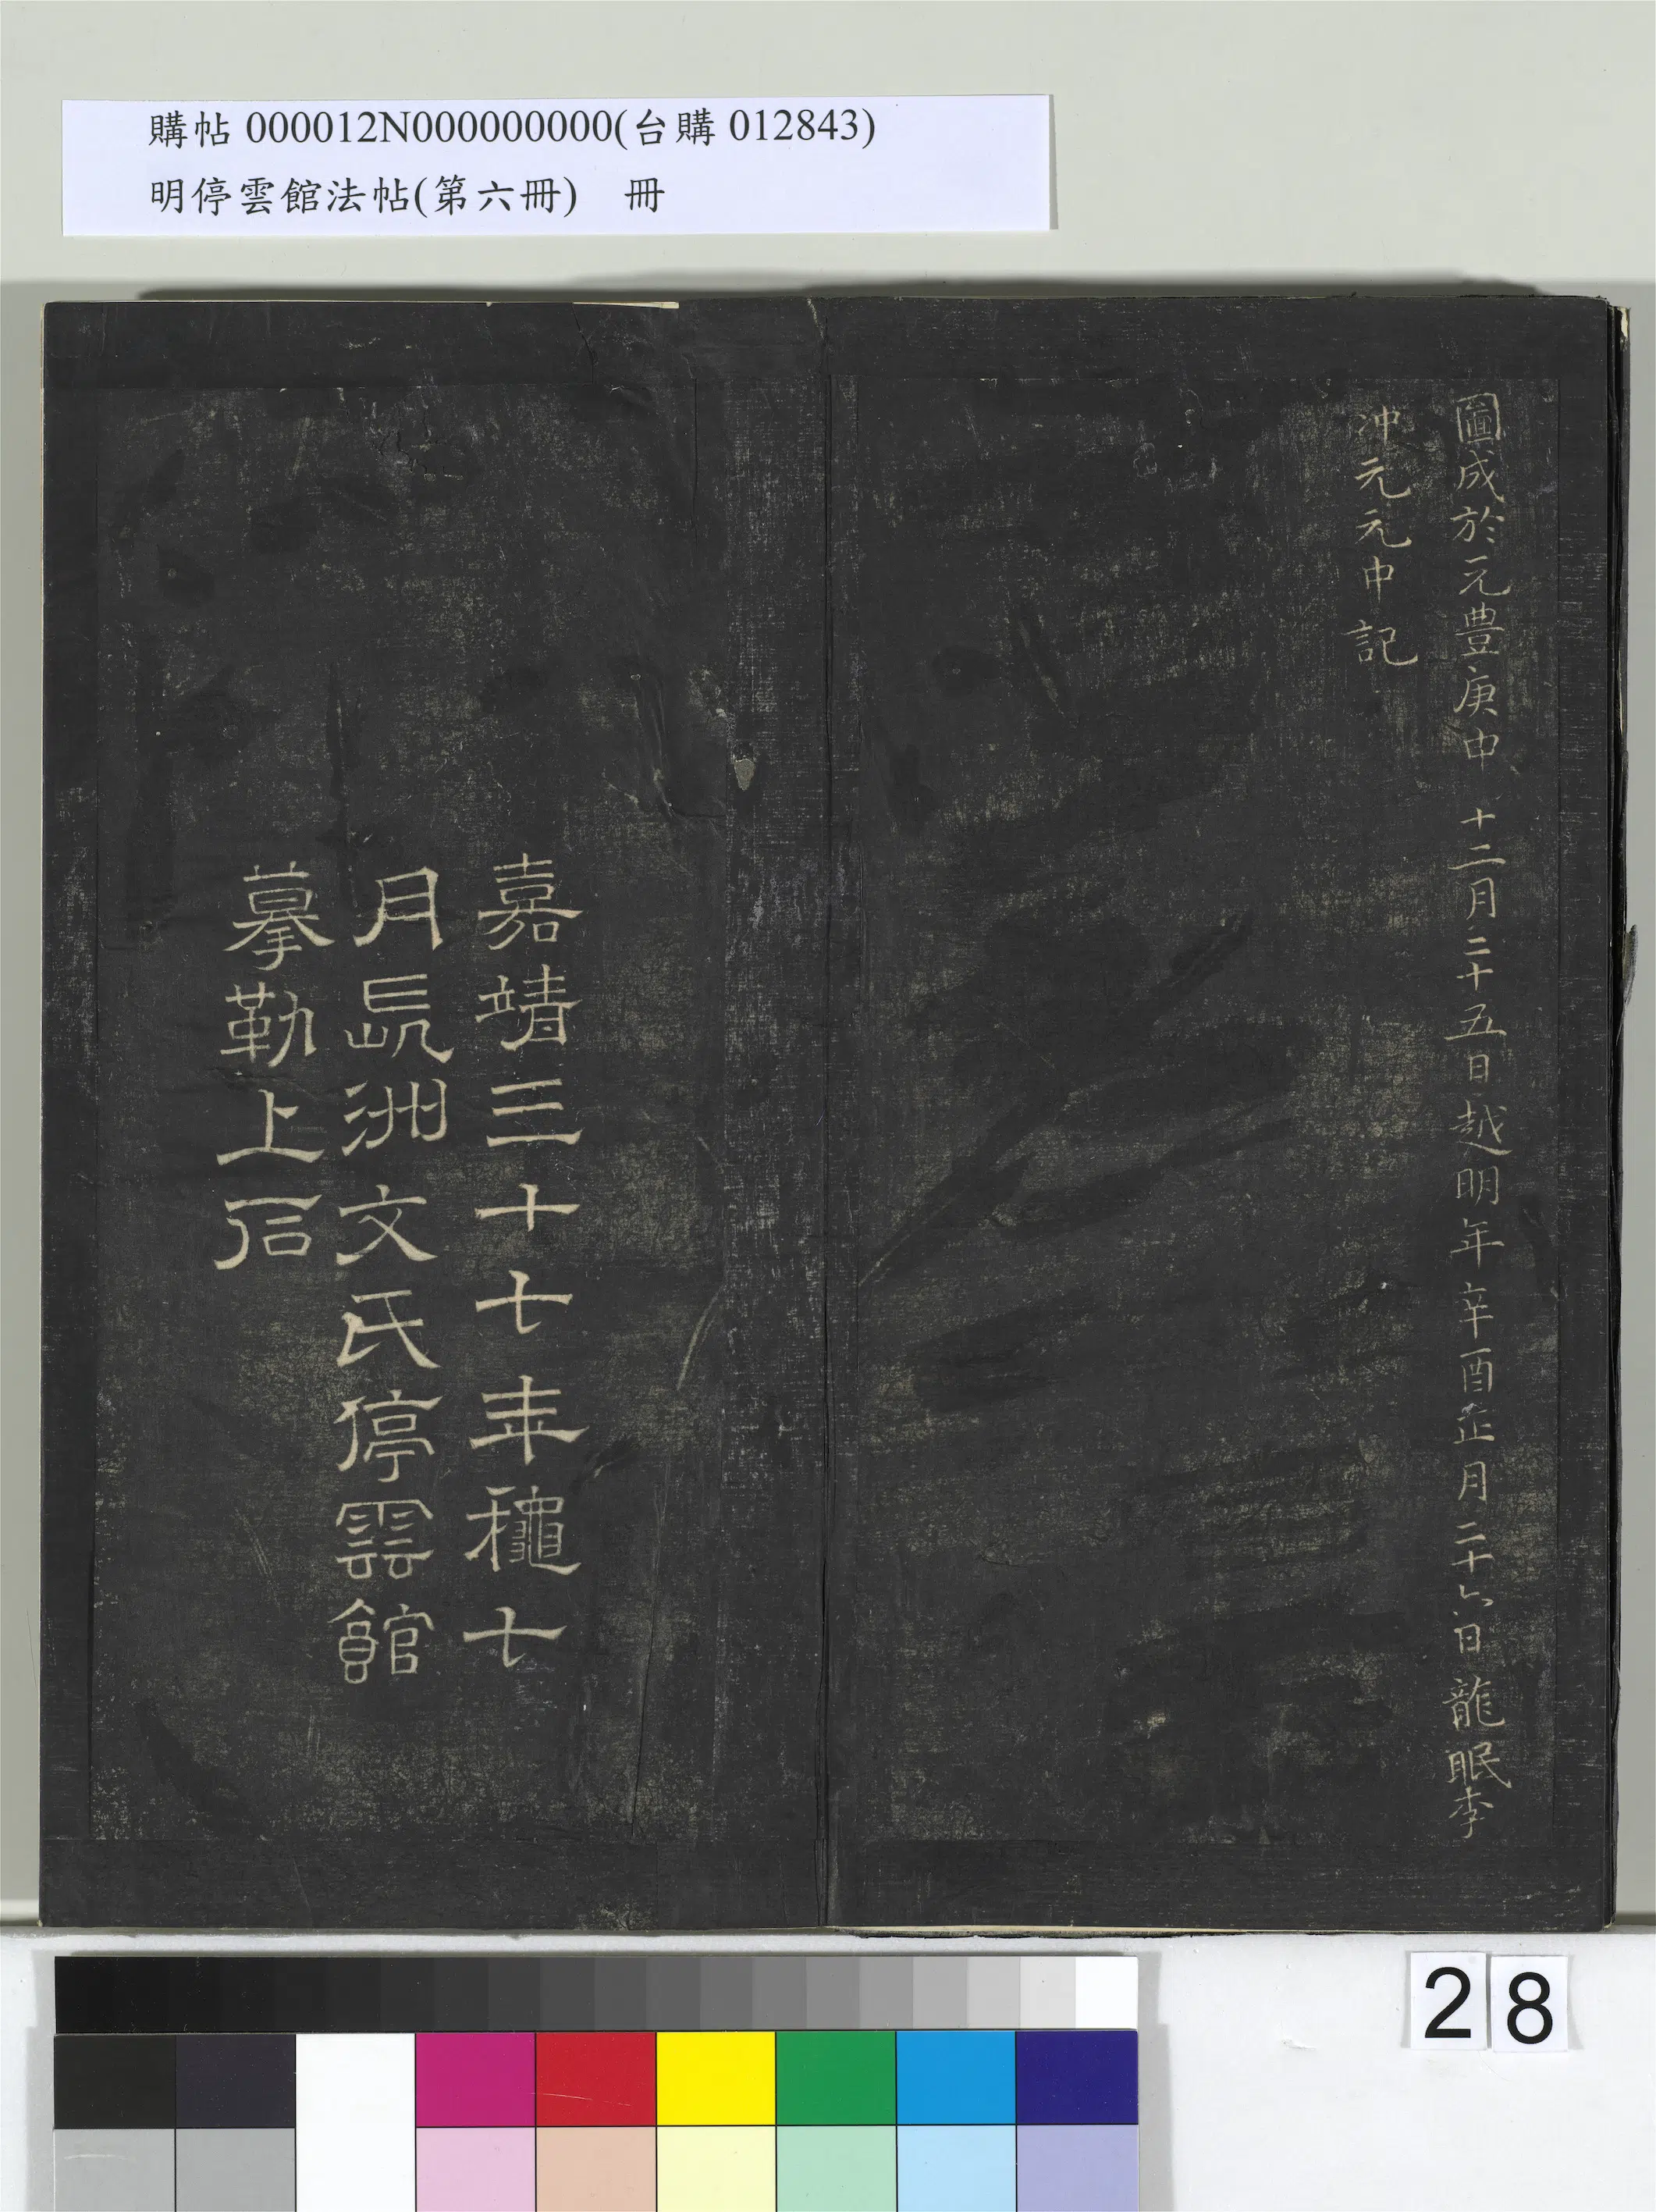 購帖 000012N000000000(台購 012843)
明停雲館法帖(第六冊)　冊
圖成於元豊庚申十二月二十五日越明年辛酉正月二十六日龍眠李
冲元元中記
嘉靖三十七年龝七
月長洲文氏停雲館
摹勒上石
28